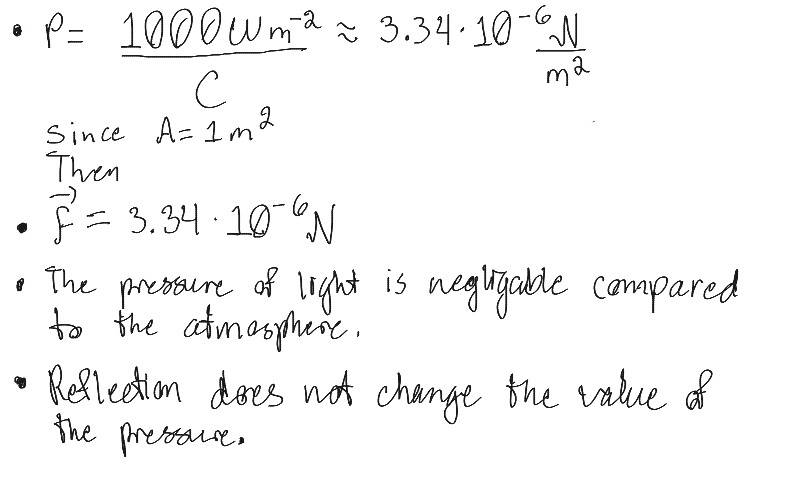 • P = 1000Wm⁻² / C ≈ 3.34·10⁻⁶ N/m²
since A= 1m²
Then
• f⃗ = 3.34·10⁻⁶N
• The pressure of light is negligable compared
to the atmosphere.
• Reflection does not change the value of
the pressure.